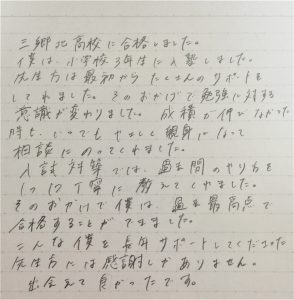 三郷北高校に合格しました。
僕は、小学校3年生に入塾しました。
先生方は最初からたくさんのサポートを
してくれました。そのおかげで勉強に対する
意識が変わりました。成績が伸びなかった
時も、いつでもやさしく親身になって
相談にのってくれました。
入試対策では、過去問のやり方を
1つ1つ丁寧に教えてくれました。
そのおかげで僕は、過去最高点で
合格することができました。
こんな僕を長年サポートしてくださった
先生方には感謝しかありません。
出会えて良かったです。